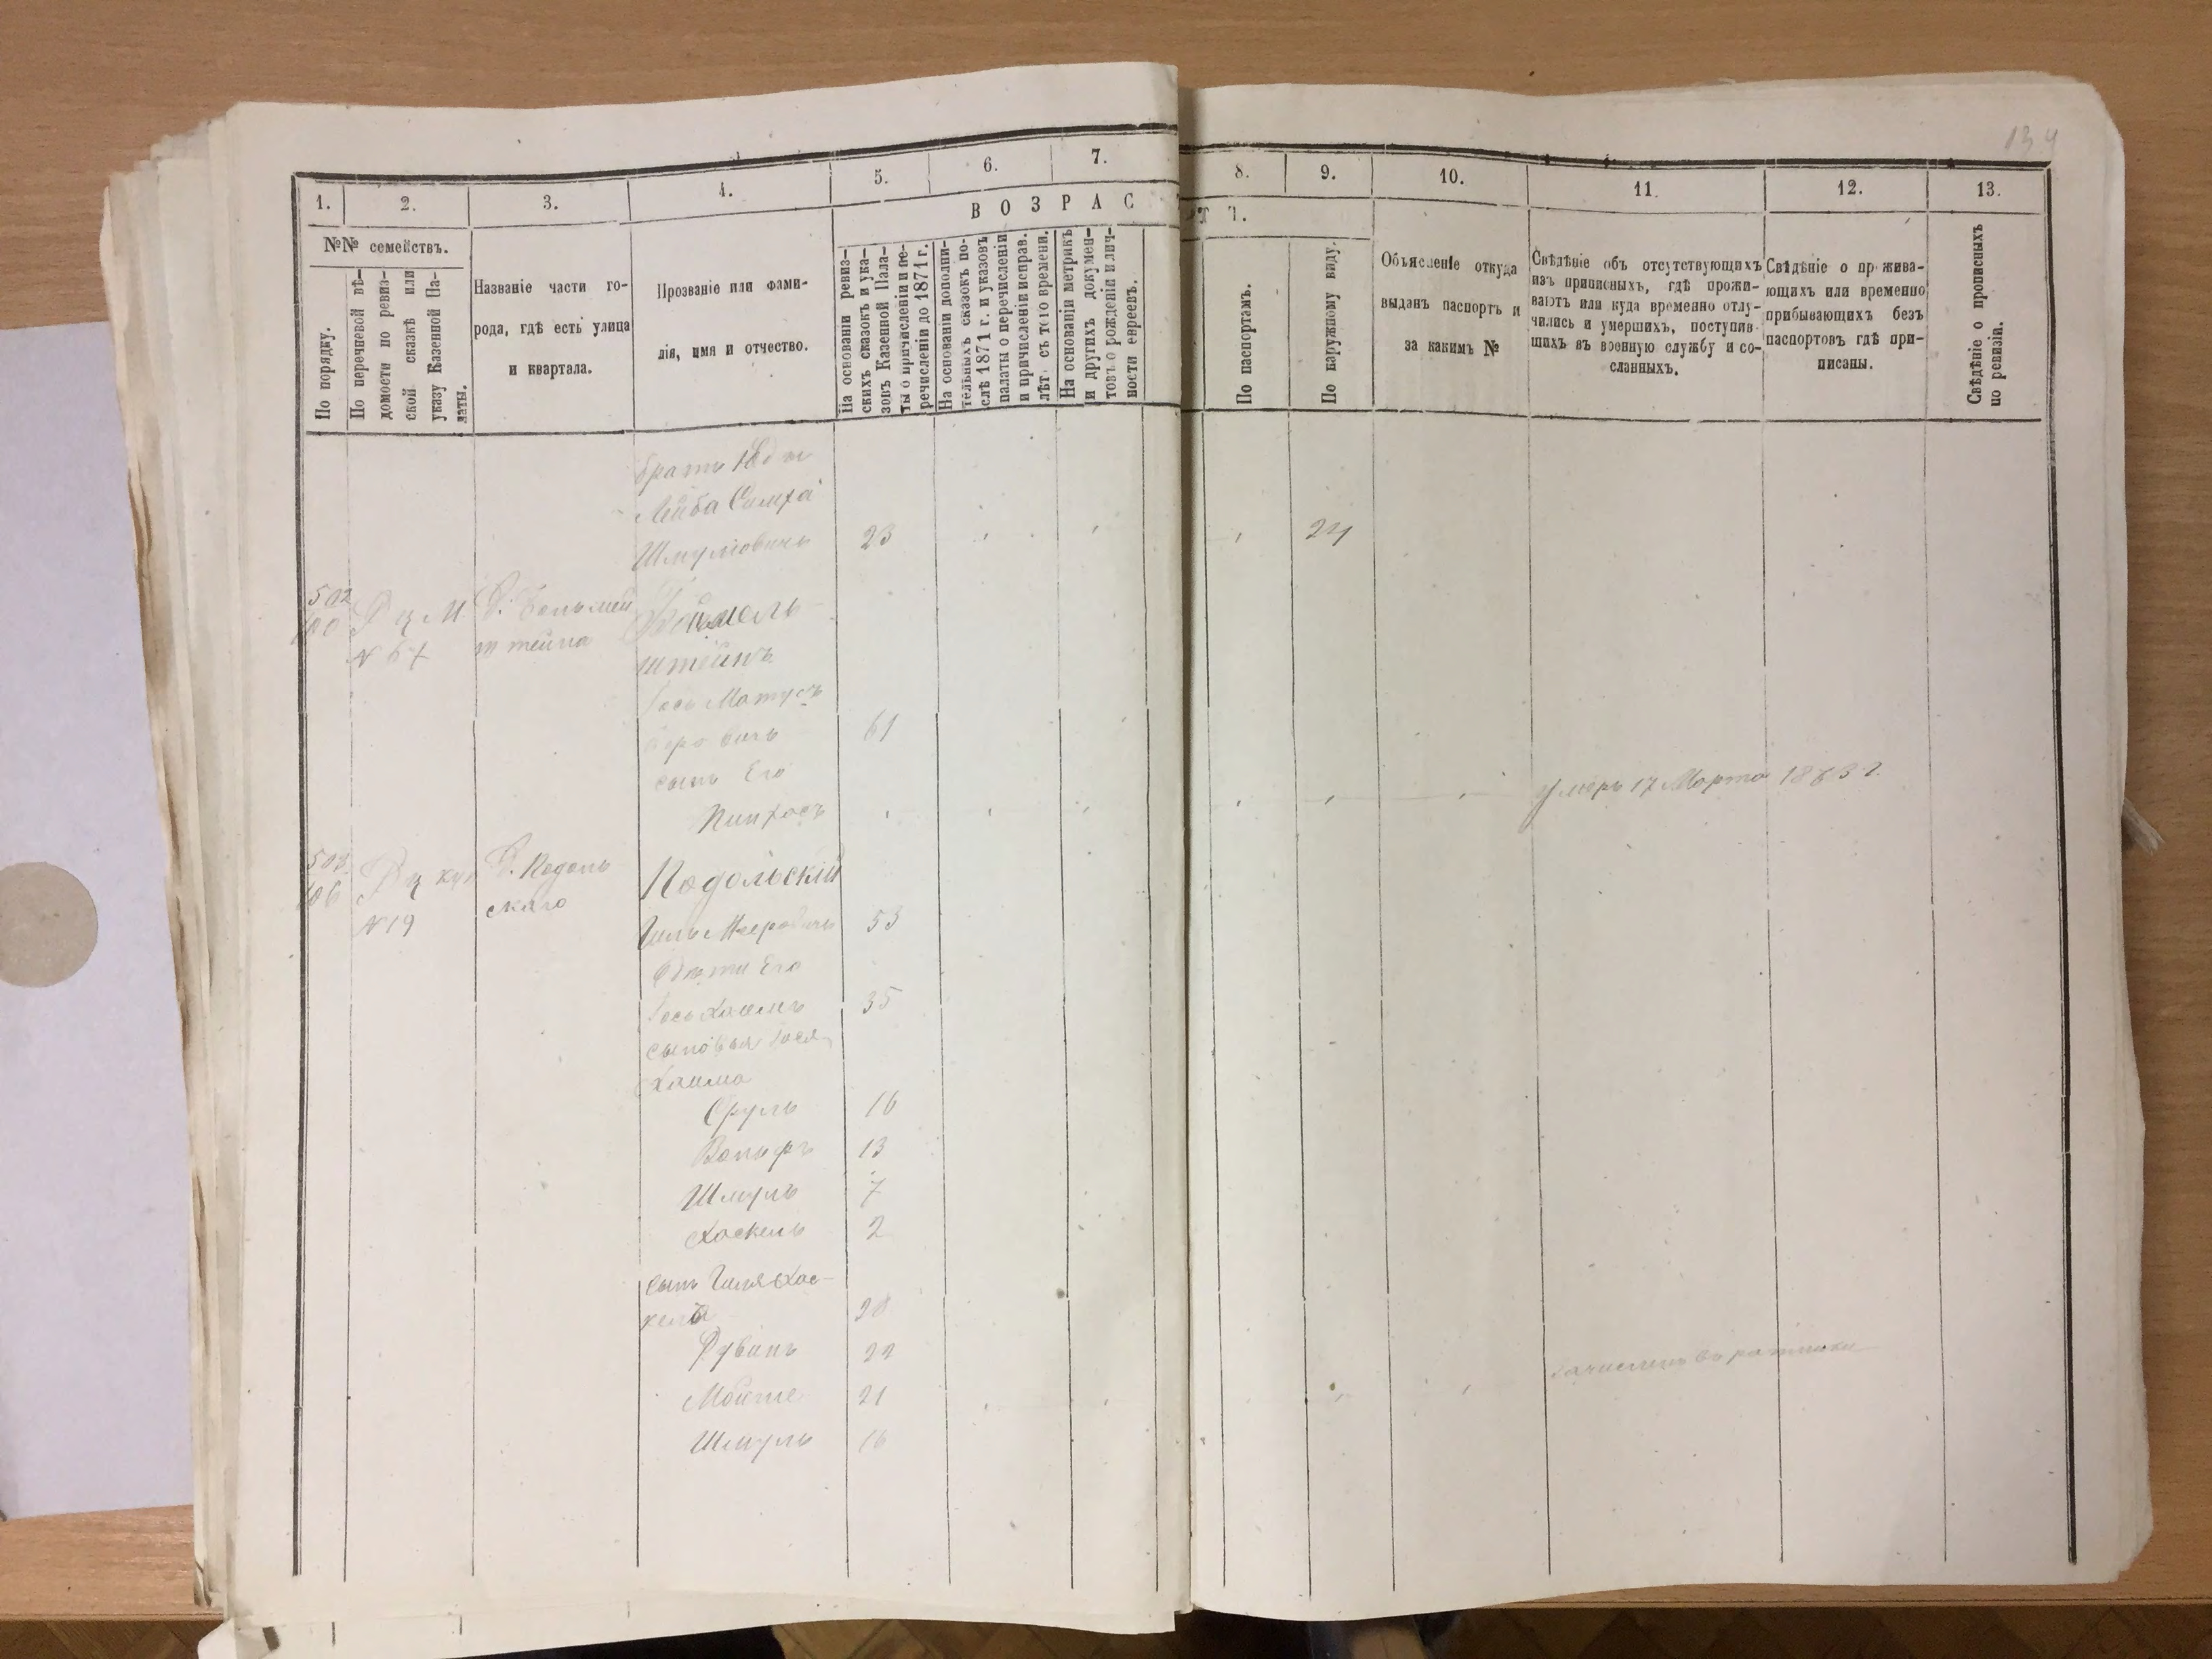 134
1. 2. 3. 4. 5. 6. 7. 8. 9. 10. 11. 12. 13.
ВОЗРАСТЪ.
№№ семействъ.
По порядку.
По перечневой вѣ-
домости по ревиз-
ской сказкѣ или
указу Казенной Па-
латы.
Названіе части го-
рода, гдѣ есть улица
и квартала.
Прозваніе или фами-
лія, имя и отчество.
На основаніи ревиз-
скихъ сказокъ и ука-
зовъ Казенной Пала-
ты о причисленіи и пе-
речисленіи до 1871 г.
На основаніи дополни-
тельныхъ сказокъ по-
слѣ 1871 г. и указовъ
палаты о перечисленіи
и причисленіи исправ.
лѣт. съ того времени.
На основаніи метрикъ
и другихъ докумен-
товъ о рожденіи и лич-
ности евреевъ.
По паспортамъ.
По наружному виду.
Объясненіе откуда
выданъ паспортъ и
за какимъ №
Свѣдѣніе объ отсутствующихъ
изъ приписныхъ, гдѣ прожи-
ваютъ или куда временно отлу-
чились и умершихъ, поступив-
шихъ въ военную службу и со-
сланныхъ.
Свѣдѣніе о прожива-
ющихъ или временно
прибывающихъ безъ
паспортовъ гдѣ при-
писаны.
Свѣдѣніе о прописныхъ
по ревизіи.
братъ
Лейба Симха
Шмулiовичъ 23 24
502
№ 67
штейна
штейнъ
Іось Матусъ
61
сынъ Его
Пинхосъ умеръ 17 Марта 1873 г.
503
106 Д. Подоль Подольскій
№ 19 скаго
Гиль Мееровичъ 53
Дѣти Его
Іось Хаимъ 35
сыновья Іося
Хаима
Сруль 16
Вольфъ 13
Шмуль 7
Хаскель 2
сынъ Гиля Хас-
кель 28
Рувинъ 22
зачисленъ въ ратники
Мойше 21
Шмуль 16